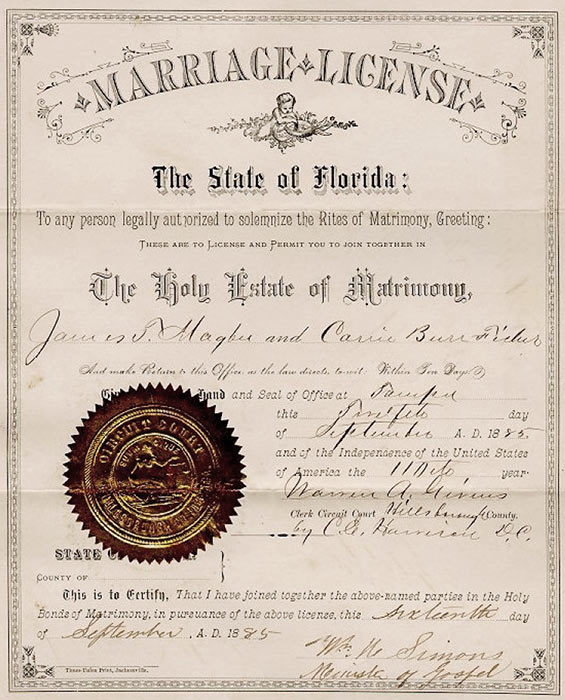 MARRIAGE LICENSE
The State of Florida:
To any person legally authorized to solemnize the Rites of Matrimony, Greeting:
THESE ARE TO LICENSE AND PERMIT YOU TO JOIN TOGETHER IN
The Holy Estate of Matrimony,
James T. Magbee and Carrie Burr Fisher
And make Return to this Office as the law directs, to-wit: Within Ten Days
Hand and Seal of Office at Tampa
this day
of September A. D. 1885.
and of the Independence of the United States
of America the year.
Warren A. Givens
Clerk Circuit Court Hillsborough County.
by C. Harrison D.C.
CIRCUIT COURT
STATE
COUNTY OF
This is to Certify, That I have joined together the above-named parties in the Holy
Bonds of Matrimony, in pursuance of the above license, this sixteenth day
of September, A. D. 1885
Wm Simons
Minister of Gospel
Times-Union Print, Jacksonville.